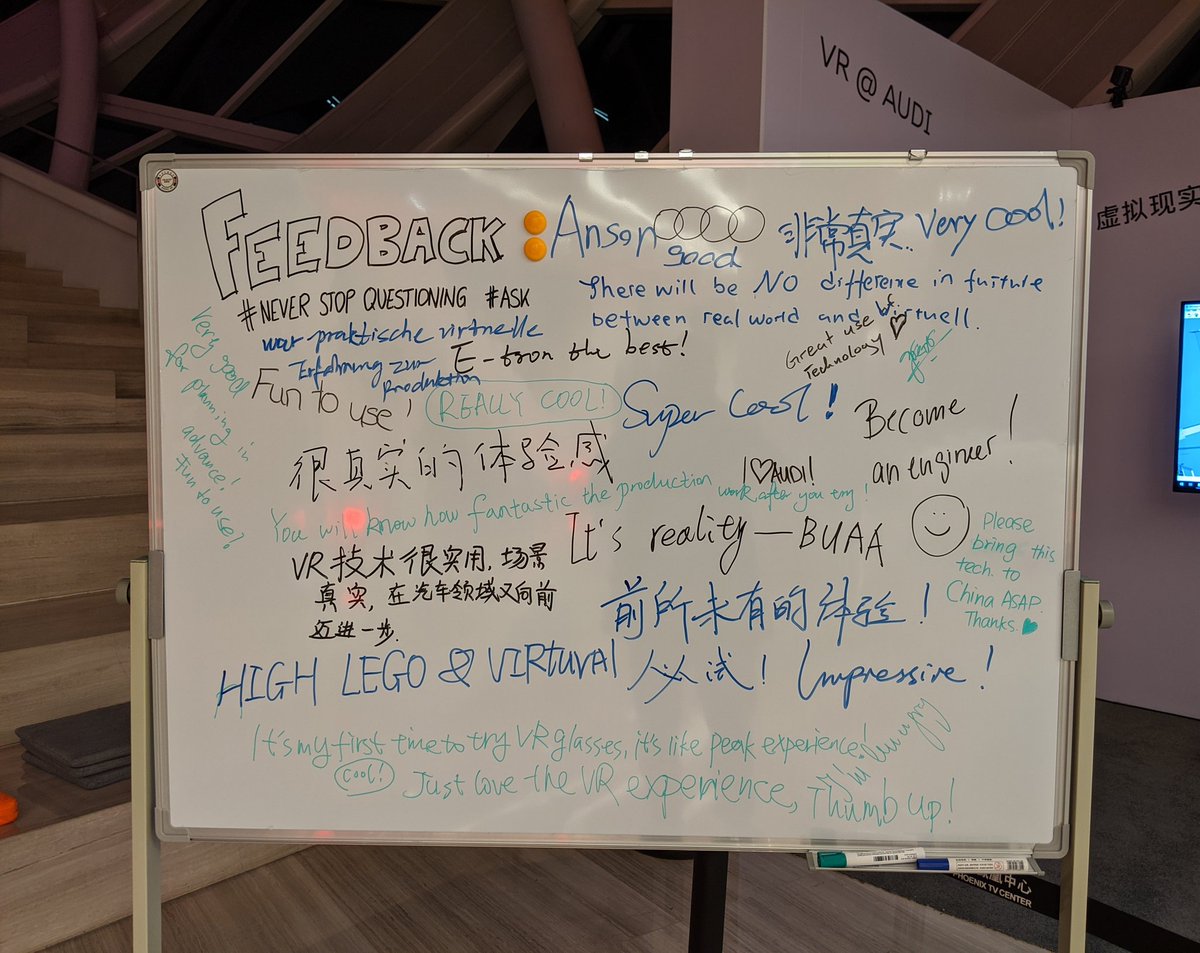 VR @ AUDI
虚拟现实
FEEDBACK:
Anson
good
非常真实. Very cool!
#NEVER STOP QUESTIONING #ASK
There will be NO difference in future
between real world and virtuell.
war praktische virtuelle
Erfahrung zur
Produktion
E-tron the best!
Great use of
Technology
Very good
for planning in
advance!
Fun to use!
Fun to use!
REALLY COOL!
Super Cool!
Become
an engineer!
很真实的体验感
I ♡ AUDI!
You will know how fantastic the production work, after you try!
It's reality — BUAA
VR技术很实用,场景
真实,在汽车领域又向前
迈进一步.
Please
bring this
tech. to
China ASAP.
Thanks.
前所未有的体验!
HIGH LEGO & VIRTURAL
必试! Impressive!
It's my first time to try VR glasses, it's like peak experience!
COOL!
Just love the VR experience, Thumb up!
凰中心
PHOENIX TV CENTER